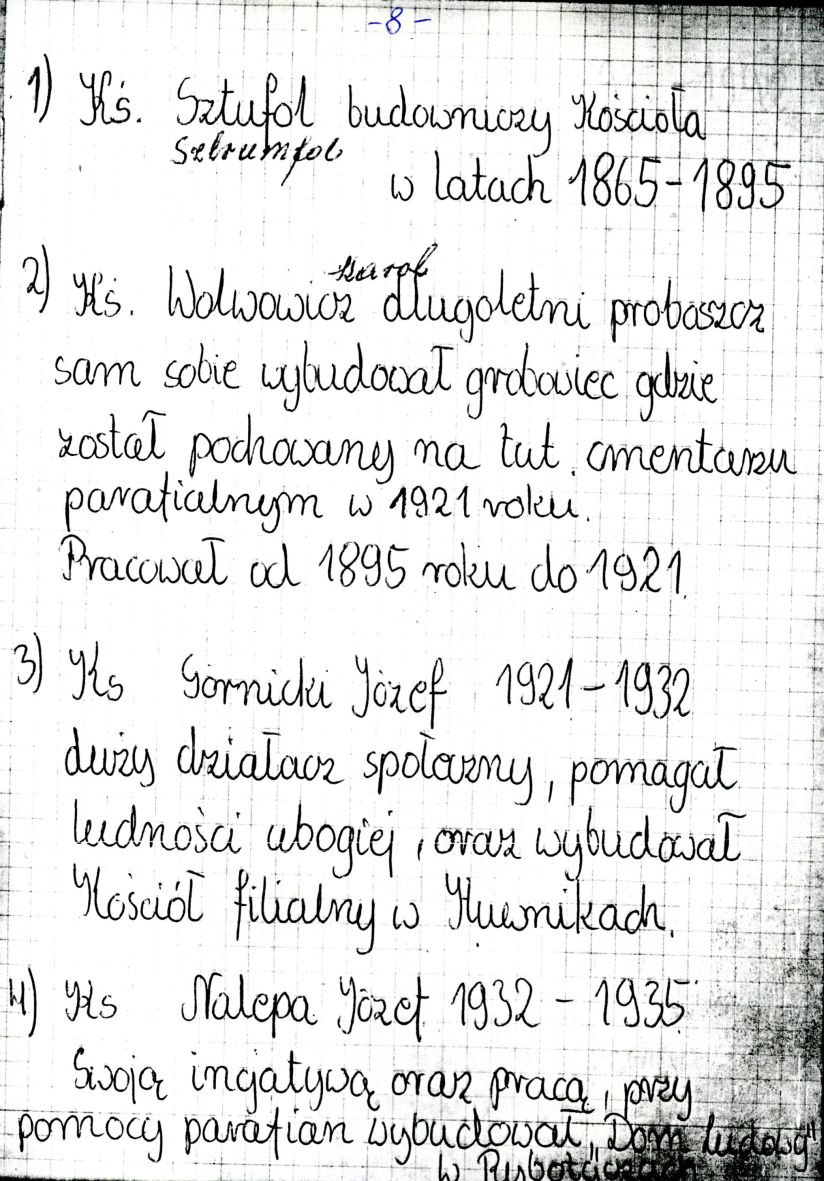 -8-
1) Kś. Sztufol budowniczy Kościoła
Sztrumfol
w latach 1865-1895
Karol
2) Kś. Wolwowicz długoletni proboszcz
sam sobie wybudował grobowiec gdzie
został pochowany na tut. cmentarzu
parafialnym w 1921 roku.
Pracował od 1895 roku do 1921.
3) Ks Górnicki Józef 1921-1932
duży działacz społeczny, pomagał
ludności ubogiej, oraz wybudował
Kościół filialny w Huwnikach.
4) Ks Nalepa Józef 1932 - 1935
Swoją incjatywą oraz pracą, przy
pomocy parafian wybudował „Dom ludowy"
w Rybotyczach